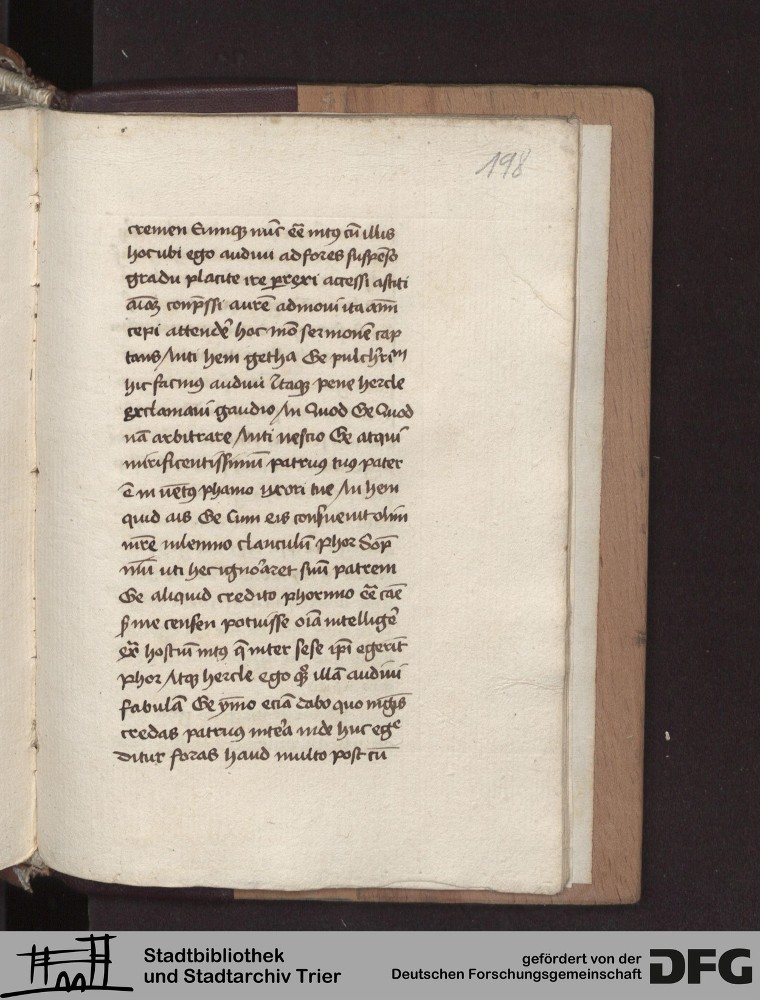 198
cremen Eumq nūc eē intꝯ cū illis
hoc ubi ego audiui ad fores suspēso
gradu placite ire prexi accessi astiti
aīaꝫ conp̄ssi aurē admoui ita aīm
cepi attendē hoc mō sermonē cap
tans Anti hem getha Ge pulchrīm
hic facinꝯ audiui Itaqꝫ pene hercle
exclamaui gaudio An Quod Ge Quod
nā arbitrare Anti nescio Ge atqui
mirificentissimū patruꝯ tuꝯ pater
ē inuētꝯ phanio uxori tue An hem
quid ais Ge Cum eis consueuit olim
mr̄e in lemno clanculū Phor Sop̄
niū uti hec ignoraret suū patrem
Ge aliquid credito phormio eē cāe
me censen potuisse oīa intelligē
ex̄ hostiū intꝯ q̄ inter sese ip̄i egerīt
Phor Atqꝫ hercle ego qꝫ illā audiui
fabulā Ge ymo eciā dabo quo magis
credas patruus inteā inde huc egᵉ
ditur foras haud multo post cū
Stadtbibliothek
und Stadtarchiv Trier
gefördert von der
Deutschen Forschungsgemeinschaft
DFG